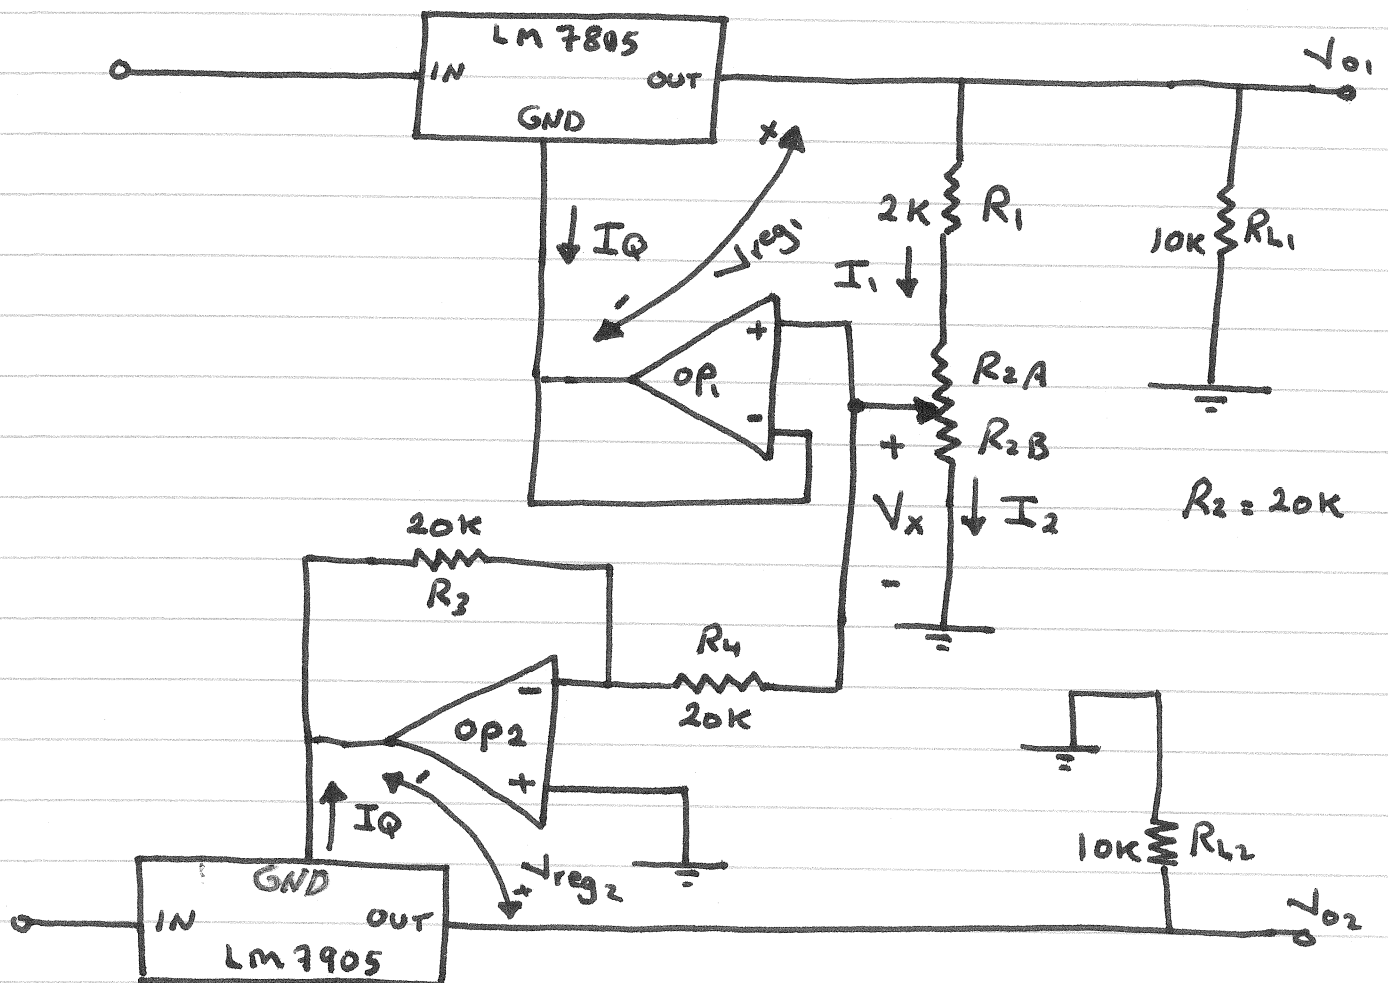 LM 7805
IN
OUT
GND
Vo1
+
Vreg1
-
IQ
2K
R1
I1
10K
RL1
+
OP1
-
R2A
R2B
+
Vx
-
I2
R2 = 20K
20K
R3
R4
20K
-
OP2
+
IQ
-
Vreg2
+
10K
RL2
GND
IN
OUT
LM 7905
Vo2